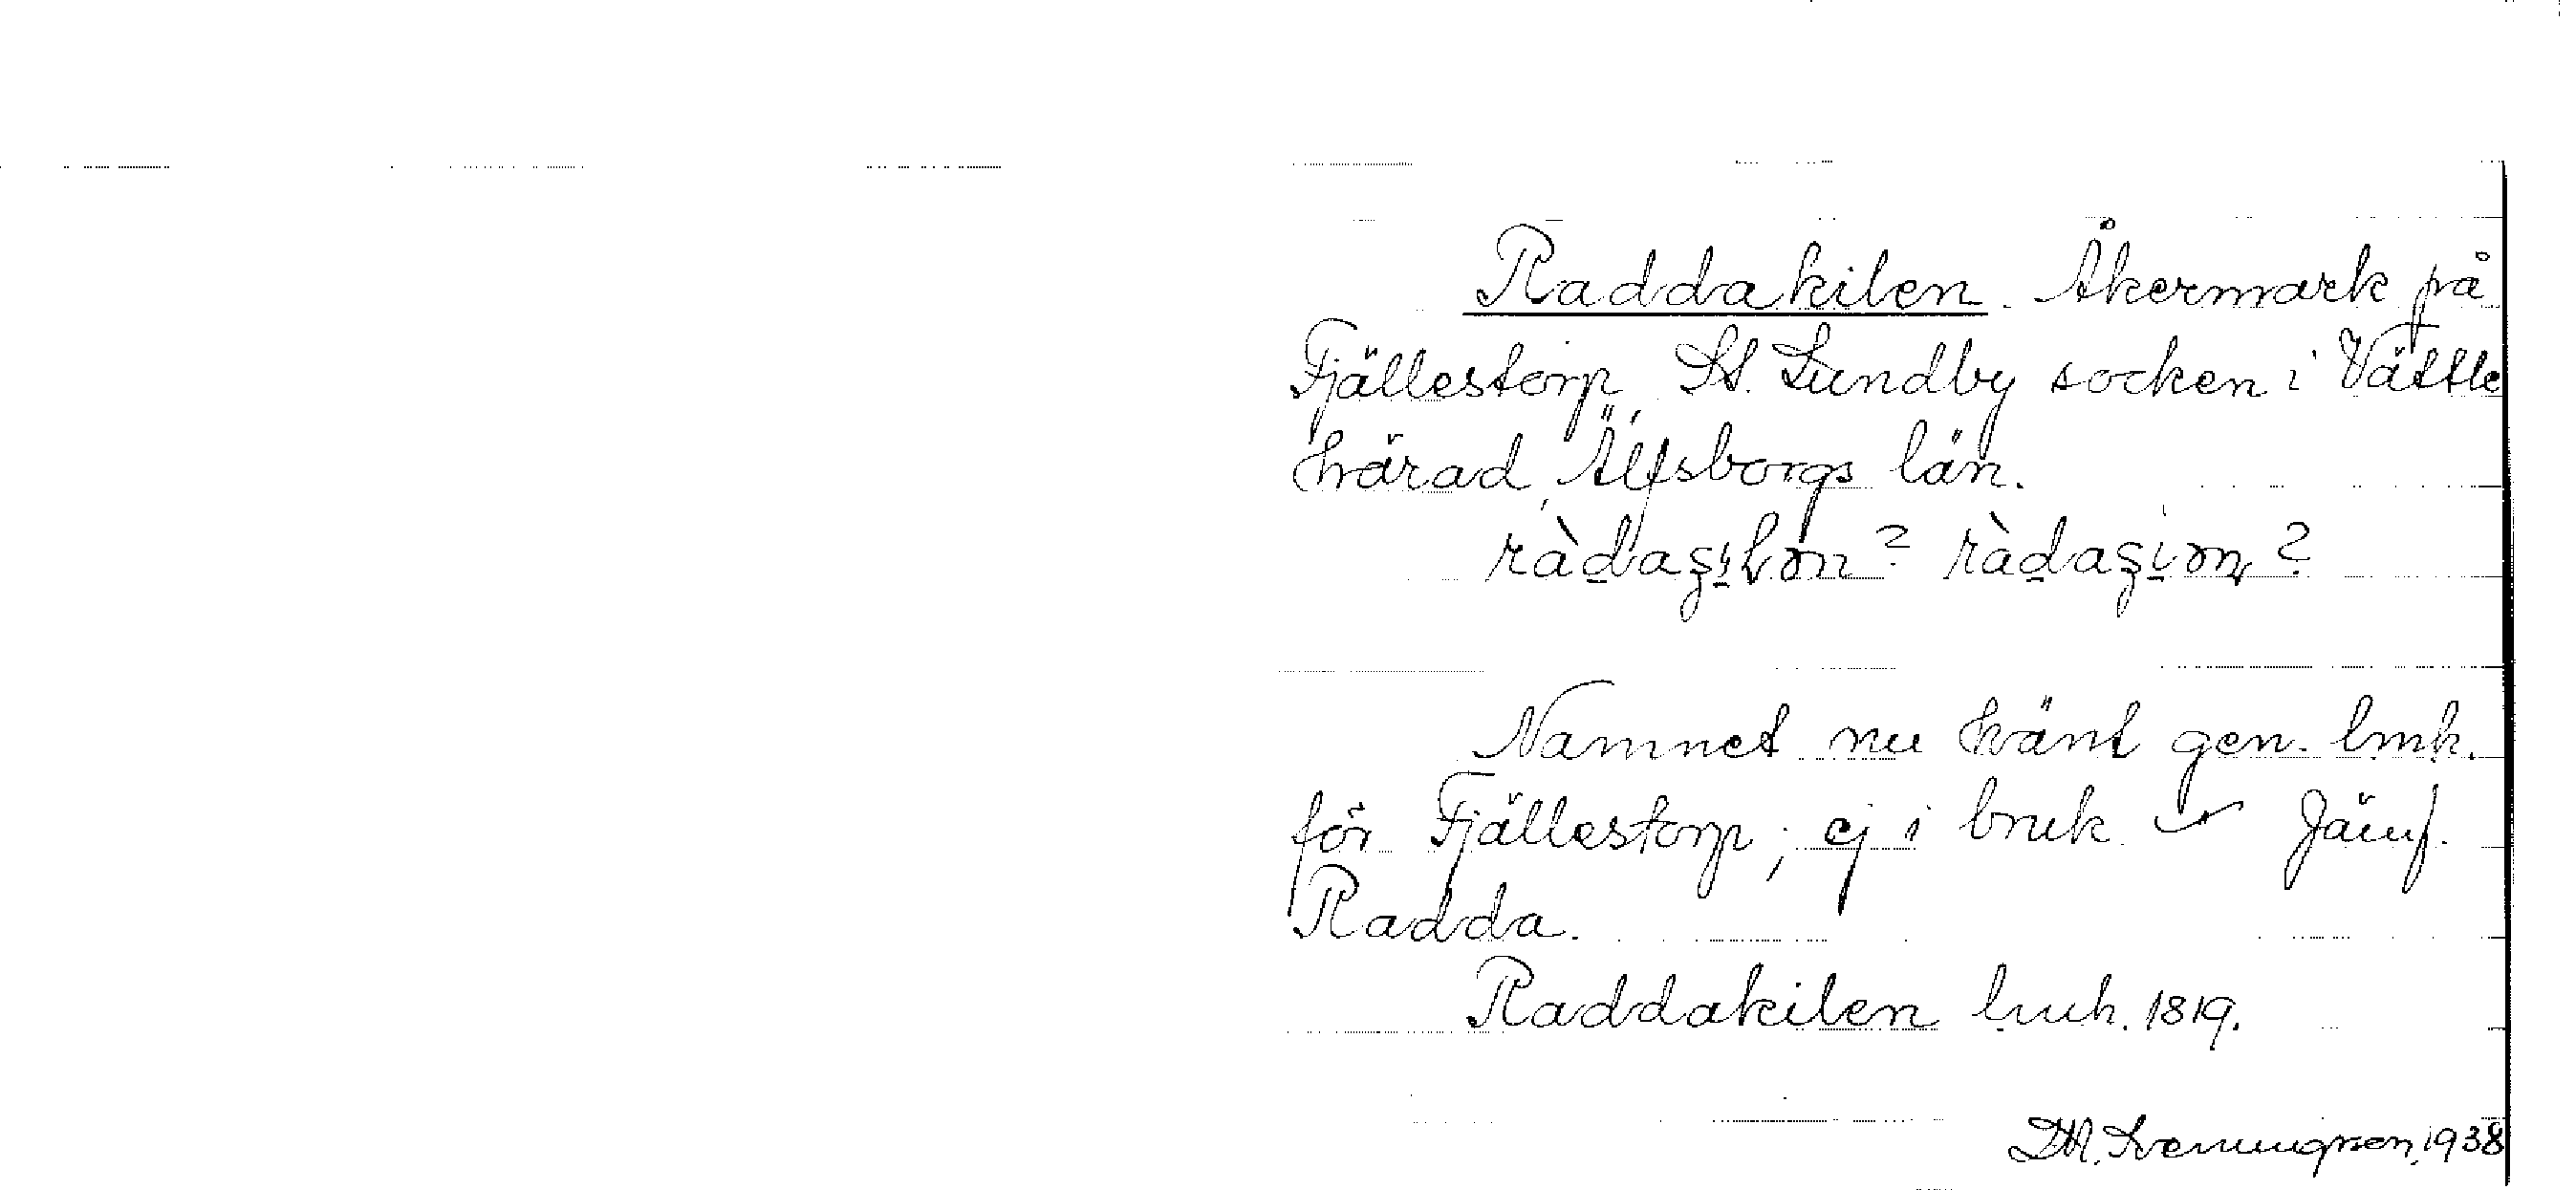 Raddakilen. Åkermark på
Fjällestorp, St. Lundby socken i Vättle
härad, Älfsborgs län.
Namnet nu känt gen. lmk.
för Fjällestorp; ej i bruk. Jämf.
Radda.
Raddakilen lmk. 1819.
1938